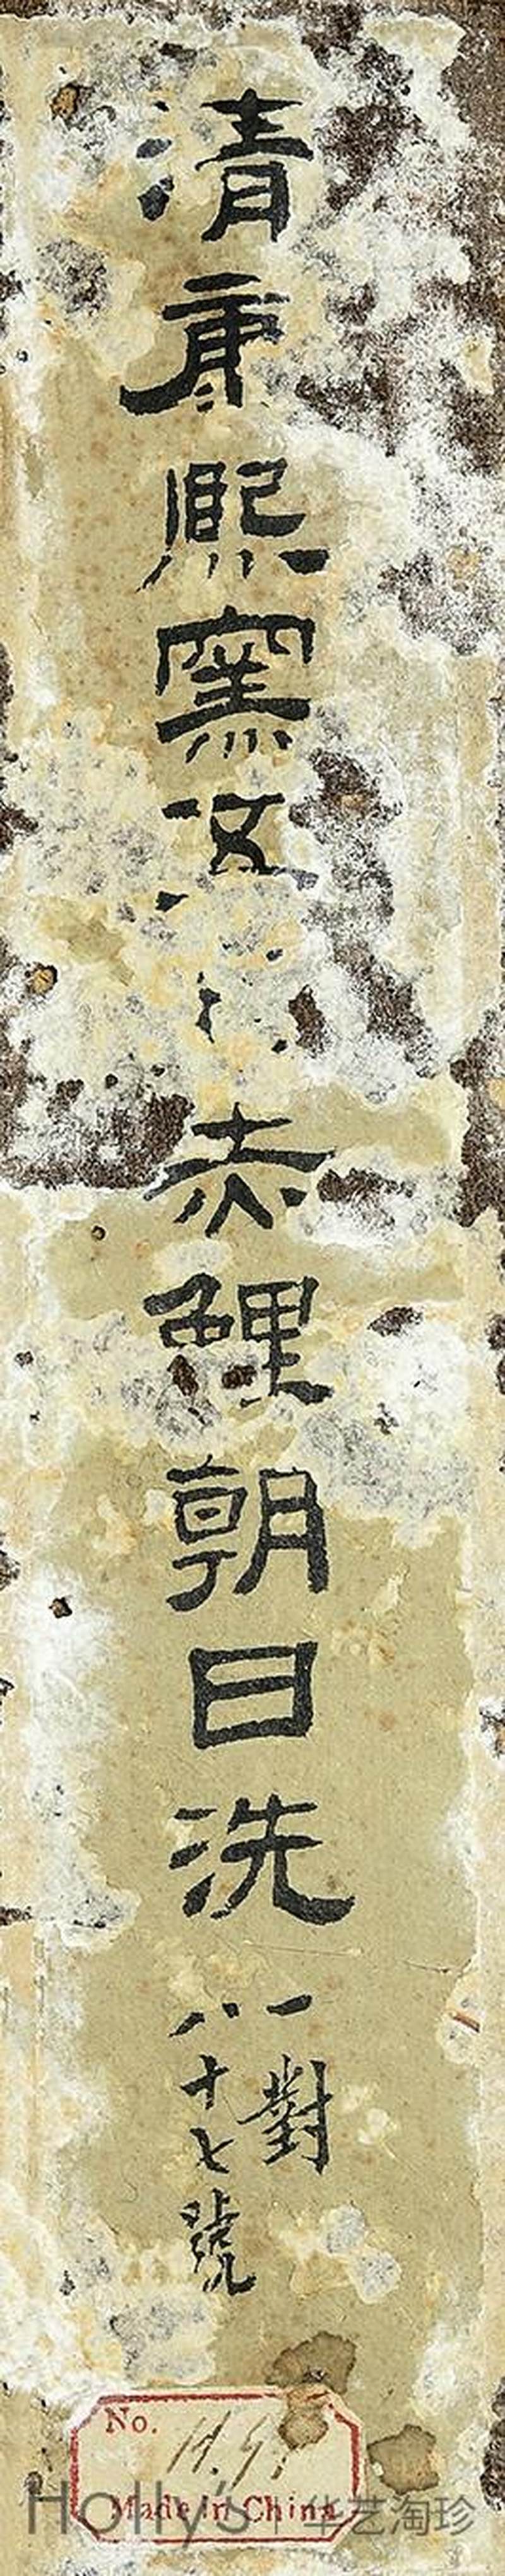 清康熙窯
赤鯉朝日洗
一對
八十七號
No.
Made in China
Holly's | 华艺淘珍